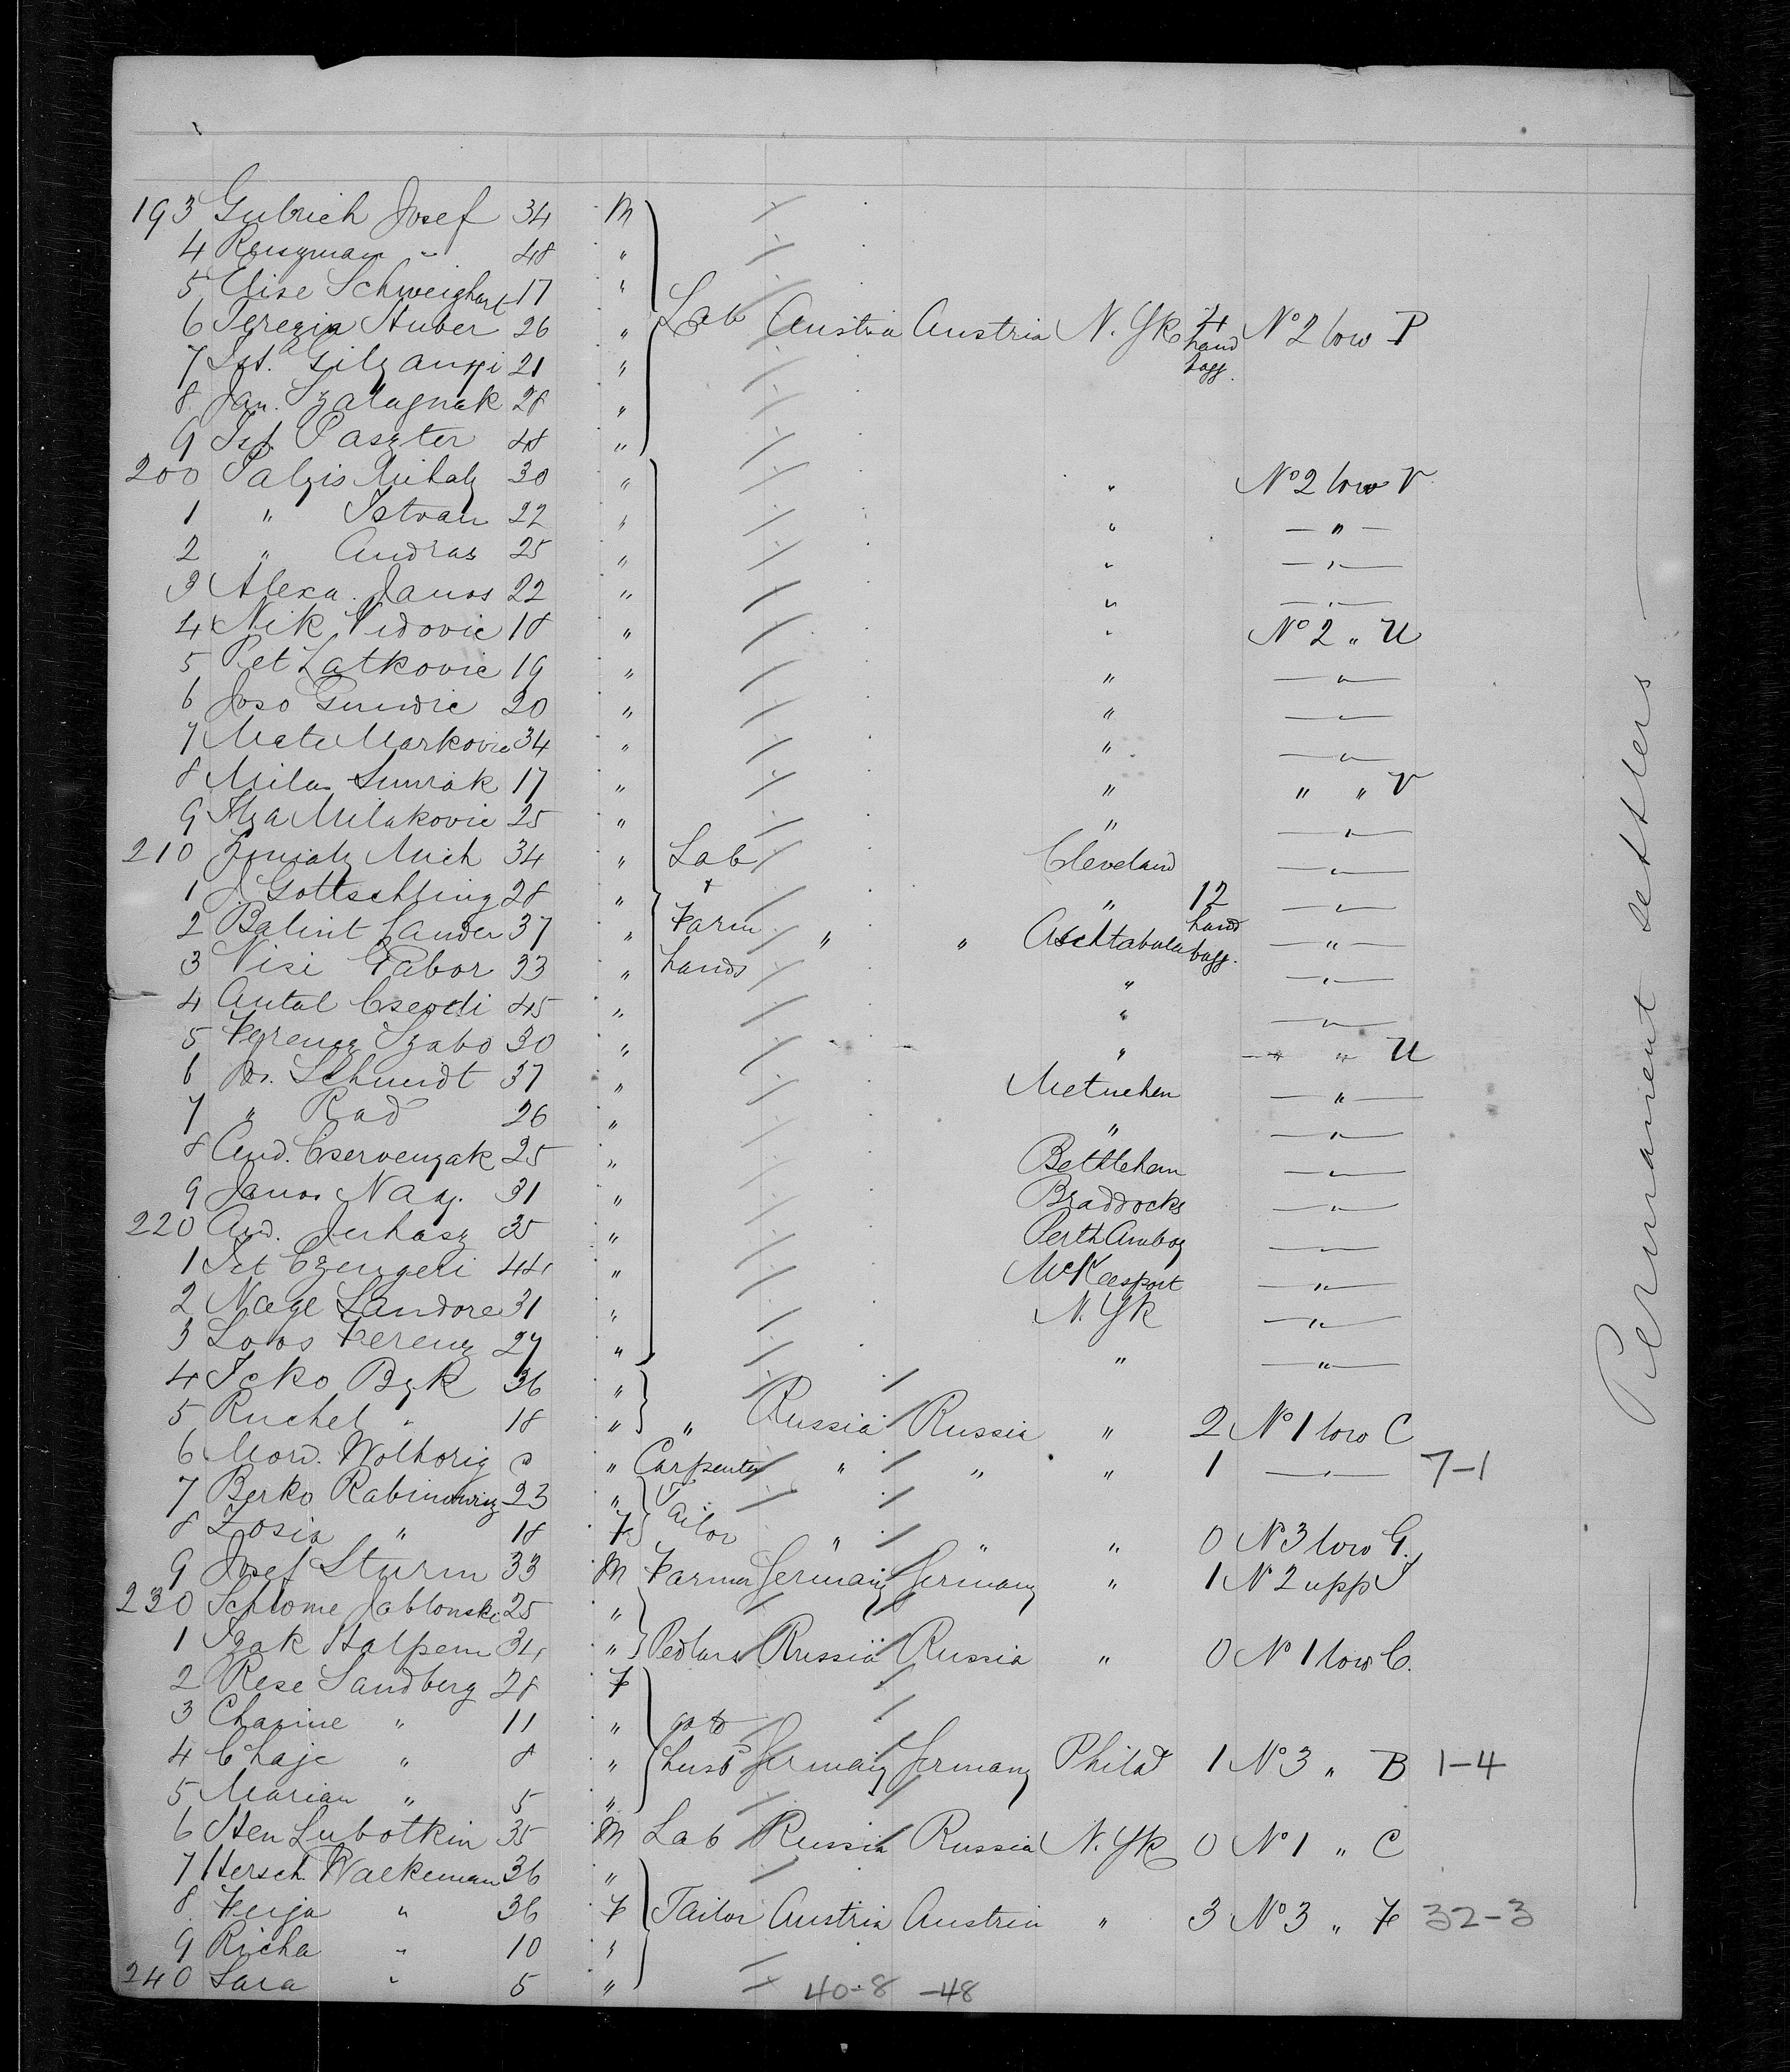 193 Gulrich Josef 34 M
4 Reiszman " 48 "
5 Elise Schweighart 17 "
6 Terezia Huber 26 " Lab Austria Austria N. Yk 4 hand bagg. No 2 low P
7 Ist. Gilzanyi 21 "
8 Jan. 28 "
9 Ist. Paszter 48 "
200 Palzis Mihaly 30 " " No 2 low V
1 " Istvan 22 " " "
2 " Andras 25 " " "
3 Alexa. Janos 22 " " "
4 Nik Vidovic 18 " " No 2 " U
5 Pet Latkovic 19 " " "
6 Joso 20 " " "
7 Mate Markovic 34 " " "
8 Milan 17 " " " " V
9 Ilia Milakovic 25 " " "
210 Mich 34 " Lab Cleveland "
1 J. Gottschling 28 " + " 12 "
2 Balint Sander 37 " Farm " " Aschtabula hand "
3 Visi Gabor 33 " hands " bagg. "
4 Antal 45 " " "
5 Ferencz Szabo 30 " " " " U
6 Schmidt 37 " Metuchen "
7 " Rad 26 " " "
8 And. Cservenyak 25 " Bethlehem "
9 Janos Nagy. 31 " Braddocks "
220 And. Juhasz 35 " Perth Amboy "
1 Ist Czengeri 44 " McKeesport "
2 Nage Sandore 31 " N. Yk "
3 Ferencz 27 " " "
4 Icko Byk 36 "
5 Ruchel " 18 " " Russia Russia " 2 No 1 low C
6 Mord. " Carpenter " " " 1 " 7-1
7 Berko Rabinowicz 23 "
8 Zosia " 18 F Tailor " " " 0 No 3 low G.
9 Josef Sturm 33 M Farmer Germany Germany " 1 No 2 upp J
230 Schlome Jablonski 25 "
1 Izak Halpern 34 " Pedlars Russia Russia " 0 No 1 low C.
2 Rese Sandberg 28 F
3 " 11 " go to
4 Chaje " 8 " husb Germany Germany Philad 1 No 3 " B 1-4
5 Marian " 5 "
6 Hen Lubotkin 35 M Lab Russia Russia N. Yk 0 No 1 " C
7 Hersch. Walkeman 36 "
8 Feija " 36 F Tailor Austria Austria " 3 No 3 " F 32-3
9 Richa " 10 "
240 Sara " 5 "
40-8 -48
Permanent settlers